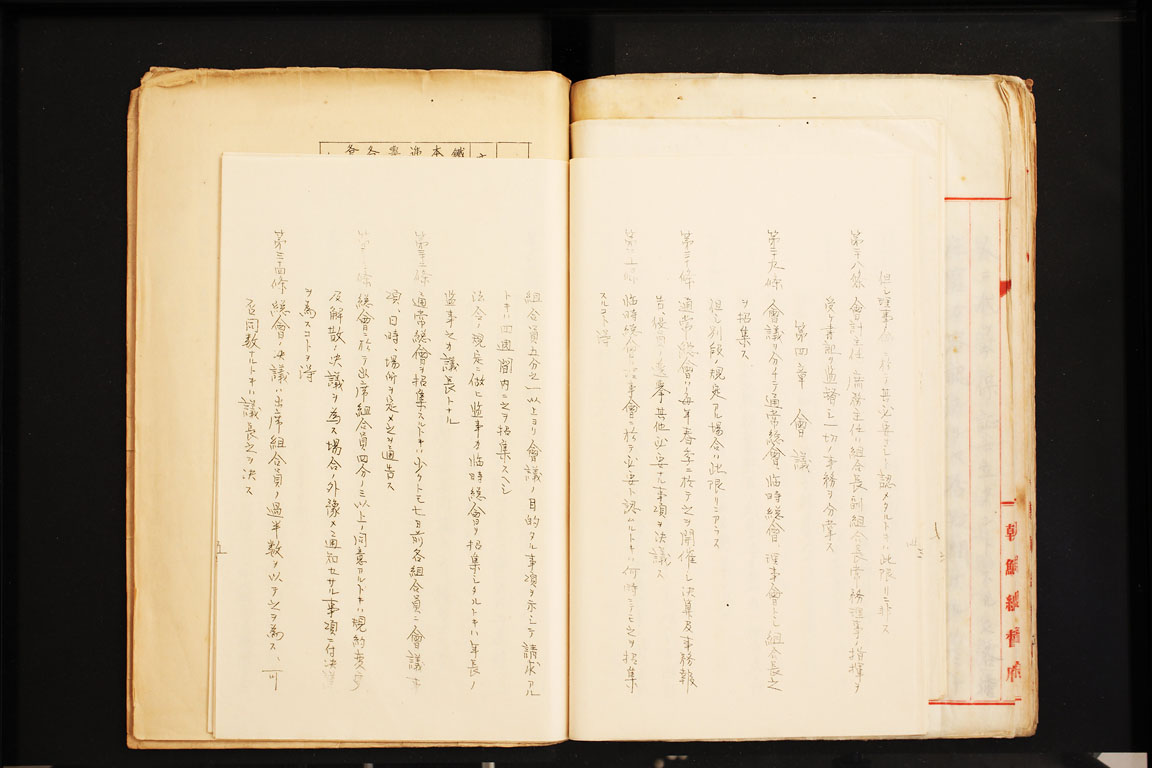 但シ理事會ニ於テ其必要ナシト認メタルトキハ此限リニ非ス
第二十八條 會計主任、庶務主任ハ組合長、副組合長、常務理事ノ指揮ヲ
受ケ書記ヲ監督シ一切ノ事務ヲ分掌ス
第四章 會議
第二十九條 會議ヲ分チテ通常総會、臨時総會、理事會トシ組合長之
ヲ招集ス
但シ別段ノ規定アル場合ハ此限リニアラス
第三十條 通常総會ハ毎年春季ニ於テ之ヲ開催シ決算及事務報
告、役員ノ選挙其他必要ナル事項ヲ決議ス
臨時総會ハ理事會ニ於テ必要ト認ムルトキハ何時ニテモ之ヲ招集
スルコトヲ得
組合員五分之一以上ヨリ會議ノ目的タル事項ヲ示シテ請求アル
トキハ四週間内ニ之ヲ招集スヘシ
法令ノ規定ニ依ヒ監事カ臨時総會ヲ招集シタルトキハ年長ノ
監事之カ議長トナル
第三十二條 通常総會ヲ招集スルトキハ少クトモ七日前各組合員ニ會議事
項、日時、場所ヲ定メ之ヲ通告ス
條 総會ニ於テ出席組合員四分ノ三以上ノ同意アルトキハ規約変更
及解散ノ決議ヲ為ス場合ノ外豫メ通知セサル事項ニ付決議
ヲ為スコトヲ得
第三十四條 総會ノ決議ハ出席組合員ノ過半数ヲ以テ之ヲ為ス、可
否同数ナルトキハ議長之ヲ決ス
五
朝鮮總督府